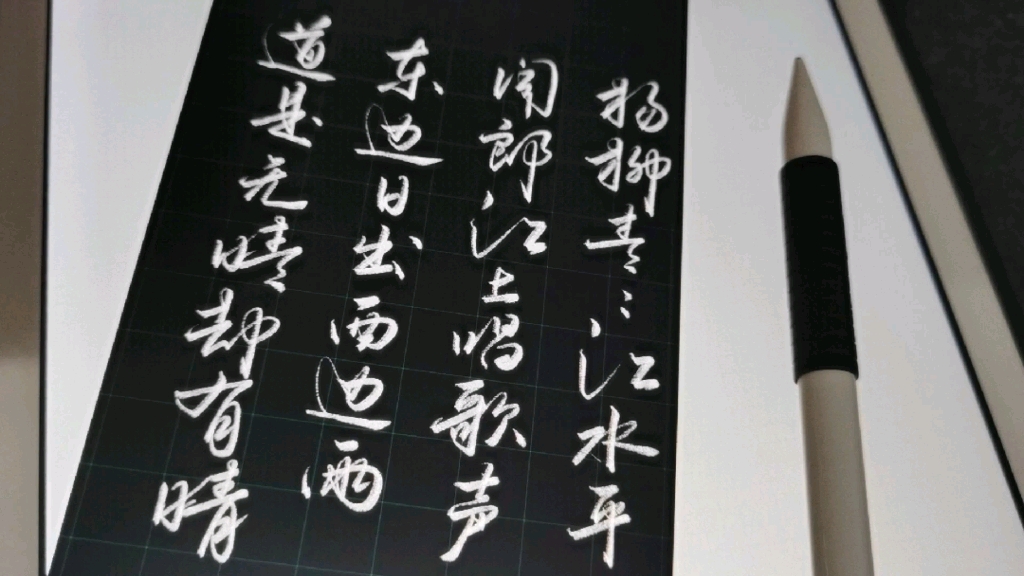 杨柳青青江水平
闻郎江上唱歌声
东边日出西边雨
道是无晴却有晴